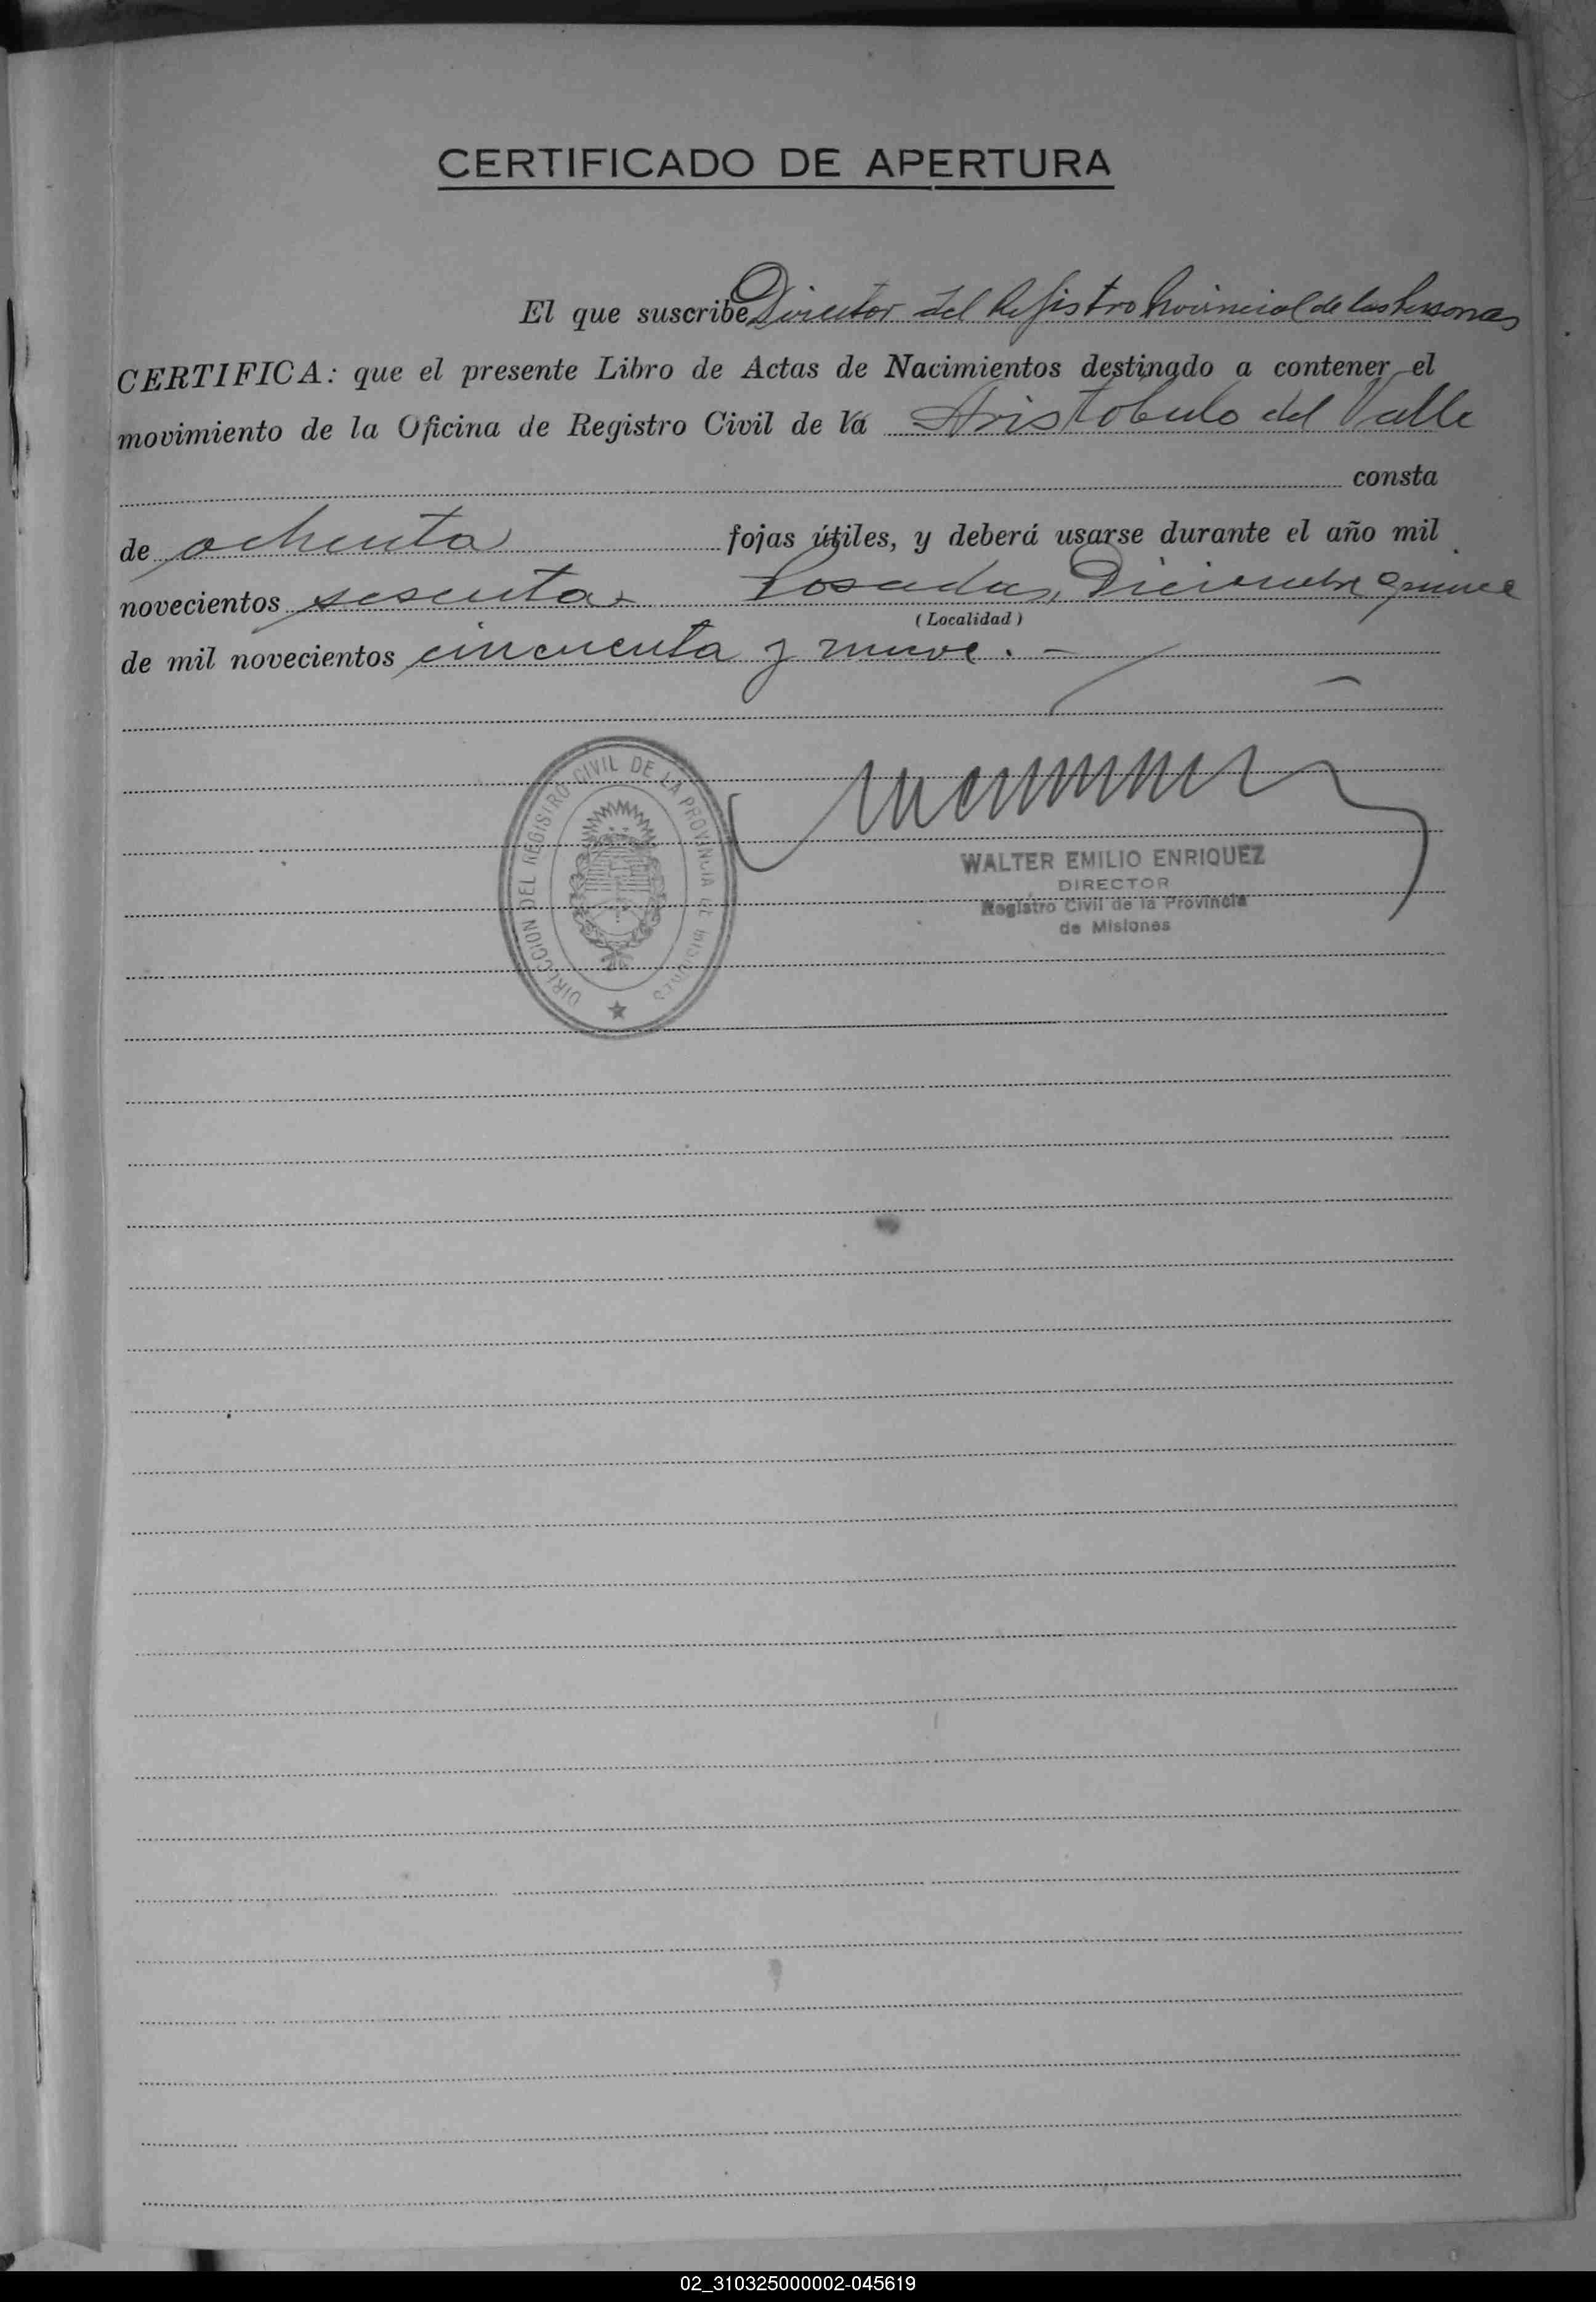 CERTIFICADO DE APERTURA
El que suscribe Director del Registro Provincial de las Personas
CERTIFICA: que el presente Libro de Actas de Nacimientos destinado a contener el
movimiento de la Oficina de Registro Civil de la Aristobulo del Valle
consta
de ochenta fojas útiles, y deberá usarse durante el año mil
novecientos sesenta. Posadas, Diciembre quince
( Localidad )
de mil novecientos cincuenta y nueve. -
DIRECCION DEL REGISTRO CIVIL DE LA PROVINCIA DE MISIONES
WALTER EMILIO ENRIQUEZ
DIRECTOR
Registro Civil de la Provincia
de Misiones
02_310325000002-045619